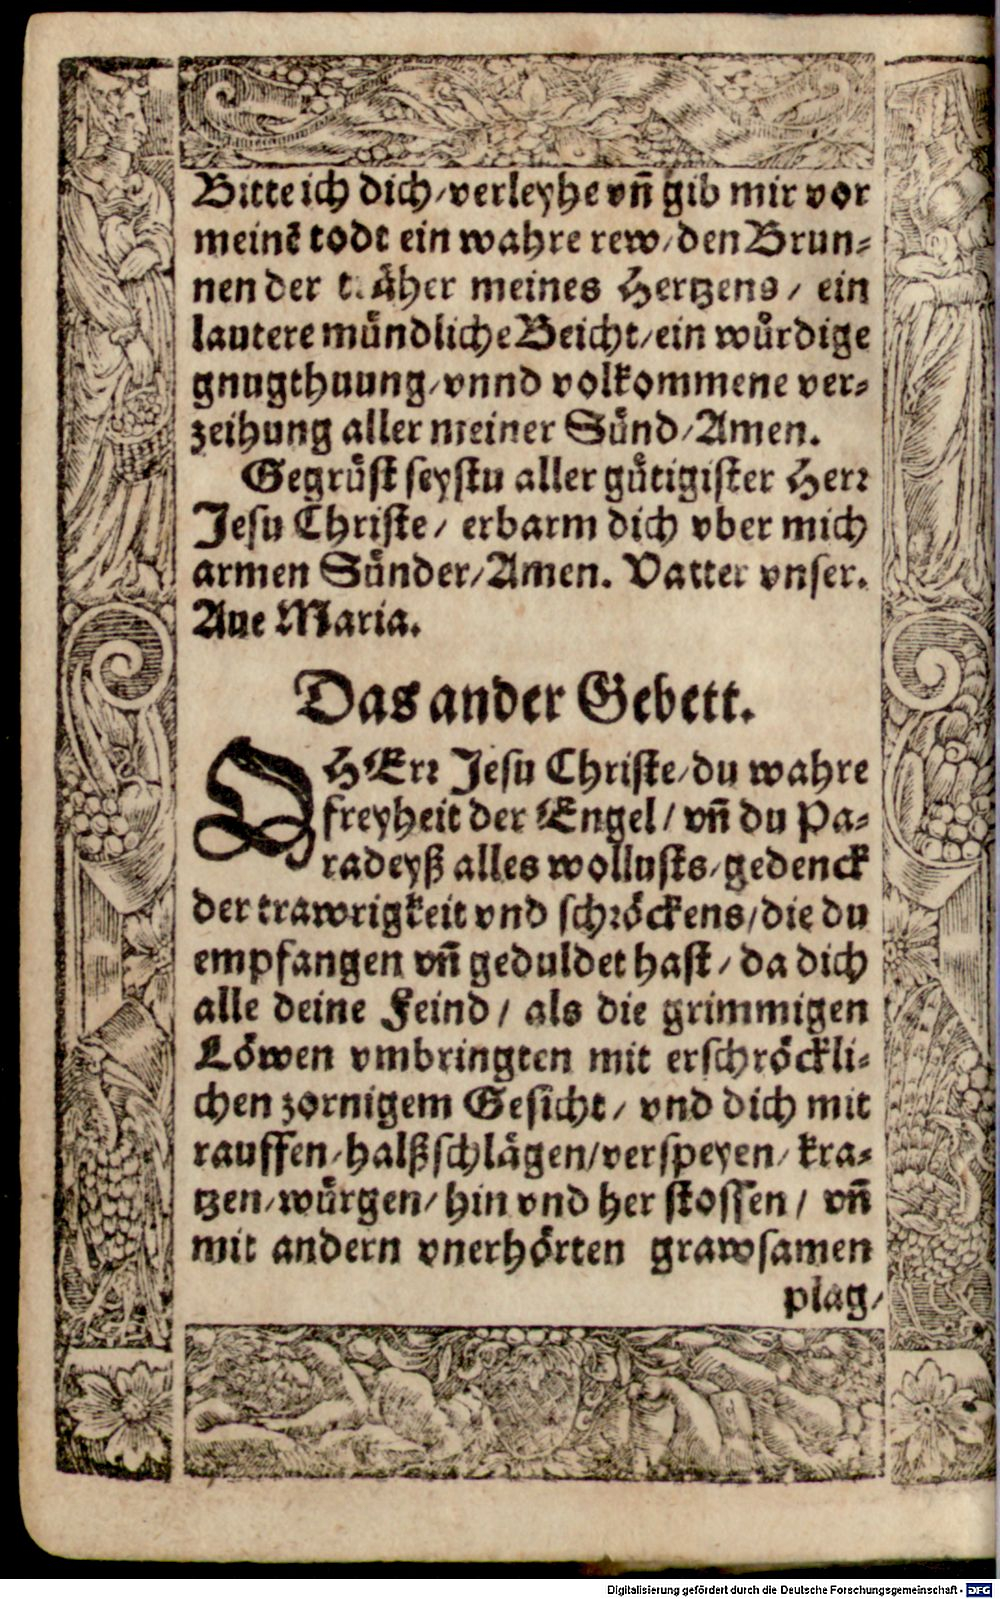 Bitte ich dich/verleyhe vñ gib mir vor
meinē todt ein wahre rew/den Brun⸗
nen der meines Hertzens/ ein
lautere mündliche Beicht/ein wůrdige
gnugthuung/vnnd volkommene ver⸗
zeihung aller meiner Sünd/Amen.
Gegrüst seystu aller gůtigister Herr
Jesu Christe/ erbarm dich vber mich
armen Sünder/Amen. Vatter vnser.
Aue Maria.
Das ander Gebett.
O HErr Jesu Christe/du wahre
freyheit der Engel/ vñ du Pa⸗
radeyß alles wollusts/gedenck
der trawrigkeit vnd schröckens/die du
empfangen vñ geduldet hast/ da dich
alle deine Feind/ als die grimmigen
Löwen vmbringten mit erschröckli⸗
chen zornigem Gesicht/ vnd dich mit
rauffen/halßschlägen/verspeyen/ kra⸗
tzen/würgen/ hin vnd her stossen/ vñ
mit andern vnerhörten grawsamen
plag/
Digitalisierung gefördert durch die Deutsche Forschungsgemeinschaft - DFG